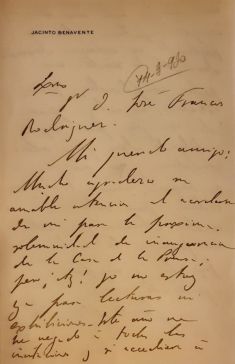 JACINTO BENAVENTE
Sr. D. José Francos
Rodríguez.
Mi querido amigo:
Mucho agradezco su
amable atención al acordarse
de mí para la próxima
solemnidad de inauguración
de la Casa de la Prensa;
pero ¡ay! yo no estoy
ya para lecturas ni
exhibiciones. Este año me
he negado á todas las
invitaciones y si accediera á